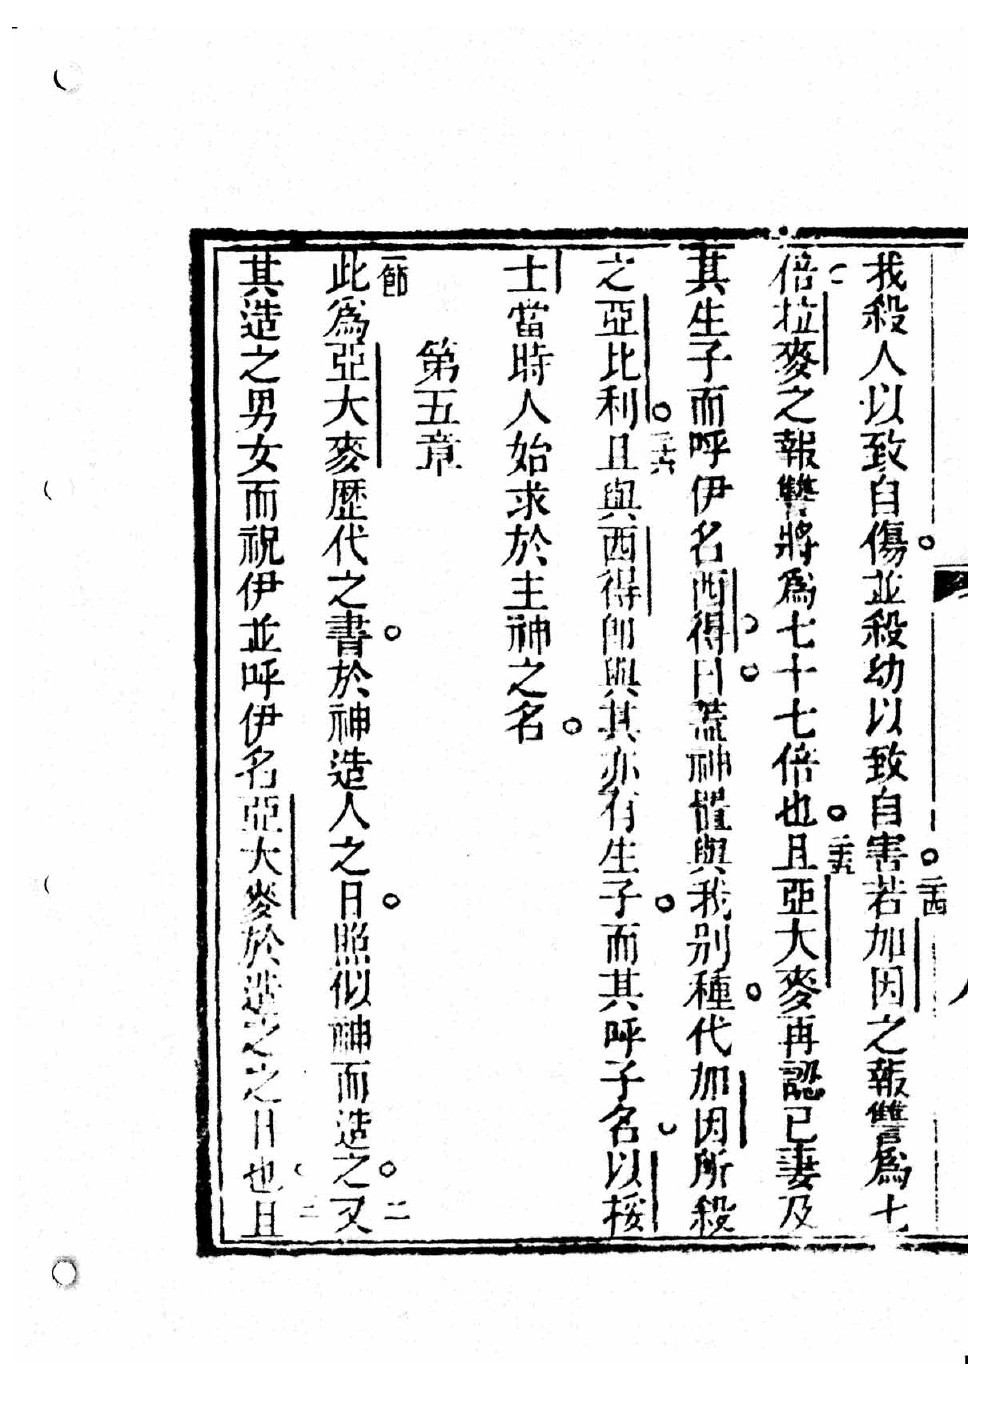 我殺人以致自傷。並殺幼以致自害。二十四若加因之報讐爲七
倍拉麥之報讐將爲七十七倍也。二十五且亞大麥再認已妻及
其生子而呼伊名西得曰。葢神慛與我別種。代加因所殺
之亞比利。二十六且與西得卽與其亦有生子。而其呼子名以挼
士當時人始求於主神之名。
第五章
一節此爲亞大麥歷代之書。於神造人之日。照似神而造之。二又
其造之男女而祝伊並呼伊名亞大麥於造之之日也。三且